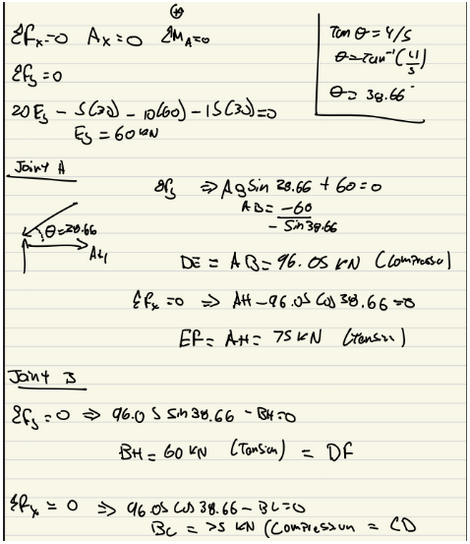 ΣFx=0 Ax=0 ΣMA=0
ΣFy=0
20Ey - 5(30) - 10(60) - 15(30)=0
Ey = 60 kN
Tan θ = 4/5
θ=Tan⁻¹(4/5)
θ= 38.66°
Joint A
θ=38.66
AH
ΣFy ⇒ AB Sin 38.66 + 60=0
AB= -60
- Sin 38.66
DE = AB = 96.05 kN (Compression)
ΣFx =0 ⇒ AH - 96.05 Cos 38.66 =0
EF= AH= 75 kN (Tension)
Joint B
ΣFy =0 ⇒ 96.05 Sin 38.66 - BH=0
BH = 60 kN (Tension) = DF
ΣFx = 0 ⇒ 96.05 Cos 38.66 - BC=0
BC = 75 kN (Compression = CD